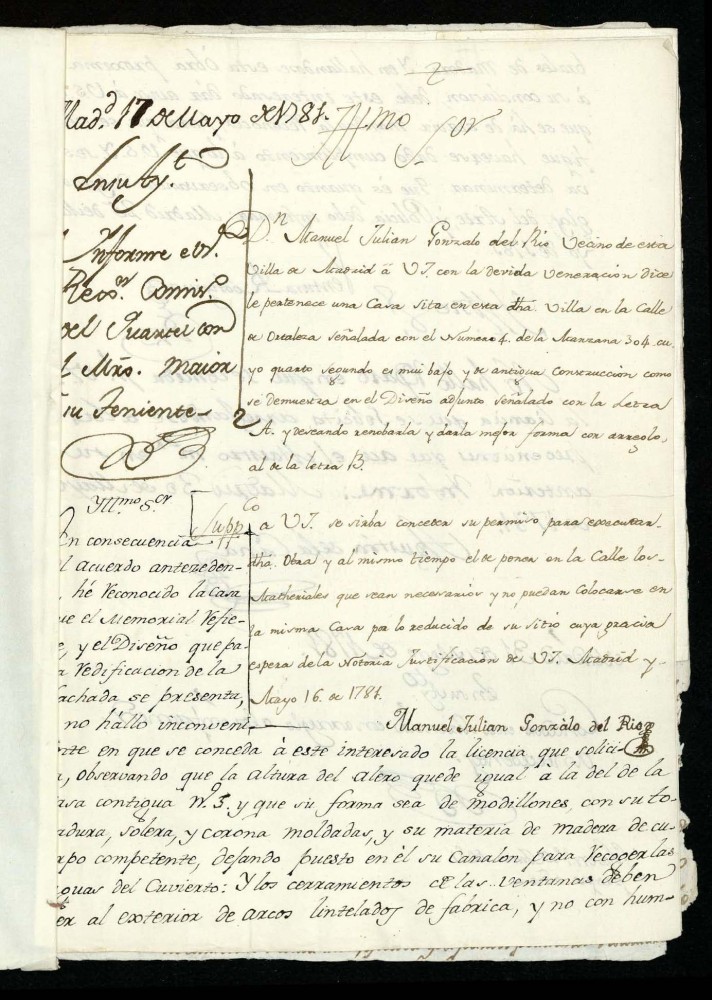 Mad.d 17 de Mayo de 1781. Yllmo Sor
En su Ay.t
Informe el Sr.
Reg.or Comis.o
del Quartel con
l Mro. Maior
su Teniente
D.n Manuel Julian Gonzalo del Rio Vecino de esta
Villa de Madrid â VI. con la devida veneracion dice
le pertenece una Casa sita en esta dha. Villa en la Calle
de Ortaleza señalada con el Numero 4. de la Manzana 304. cu-
yo quarto segundo es mui bajo y de antigua construccion como
se demuestra en el Diseño adjunto señalado con la Letra
A. y deseando renobarla y darla mejor forma con arreglo,
al de la letra B.
Supp.co
a VI. se sirba conceder su permiso para executar
dha. Obra y al mismo tiempo el de poner en la Calle los
Matheriales que sean necesarios y no puedan Colocarse en
la misma Casa por lo reducido de su sitio cuya gracia
espera de la Notoria Justificacion de VI. Madrid y
Mayo 16. de 1781.
Manuel Julian Gonzalo del Rio
Yll.mo S.or
En consecuencia
l acuerdo anteceden-
, hé reconocido la Casa
ue el Memorial refie-
e, y el Diseño que pa-
a redificacion de la
fachada se presenta,
no hállo inconveni-
nte en que se conceda à este interesado la licencia que solici-
a, observando que la altura del alero quede igual à la del de la
asa contigua N.o 3. y que su forma sea de modillones, con su to-
adura, solera, y corona moldadas, y su materia de madera de cu-
rpo competente, dejando puesto en él su Canalon para recoger las
guas del Cuvierto: Y los cerramientos de las ventanas deben
er al exterior de arcos lintelados de fabrica, y no con hum-